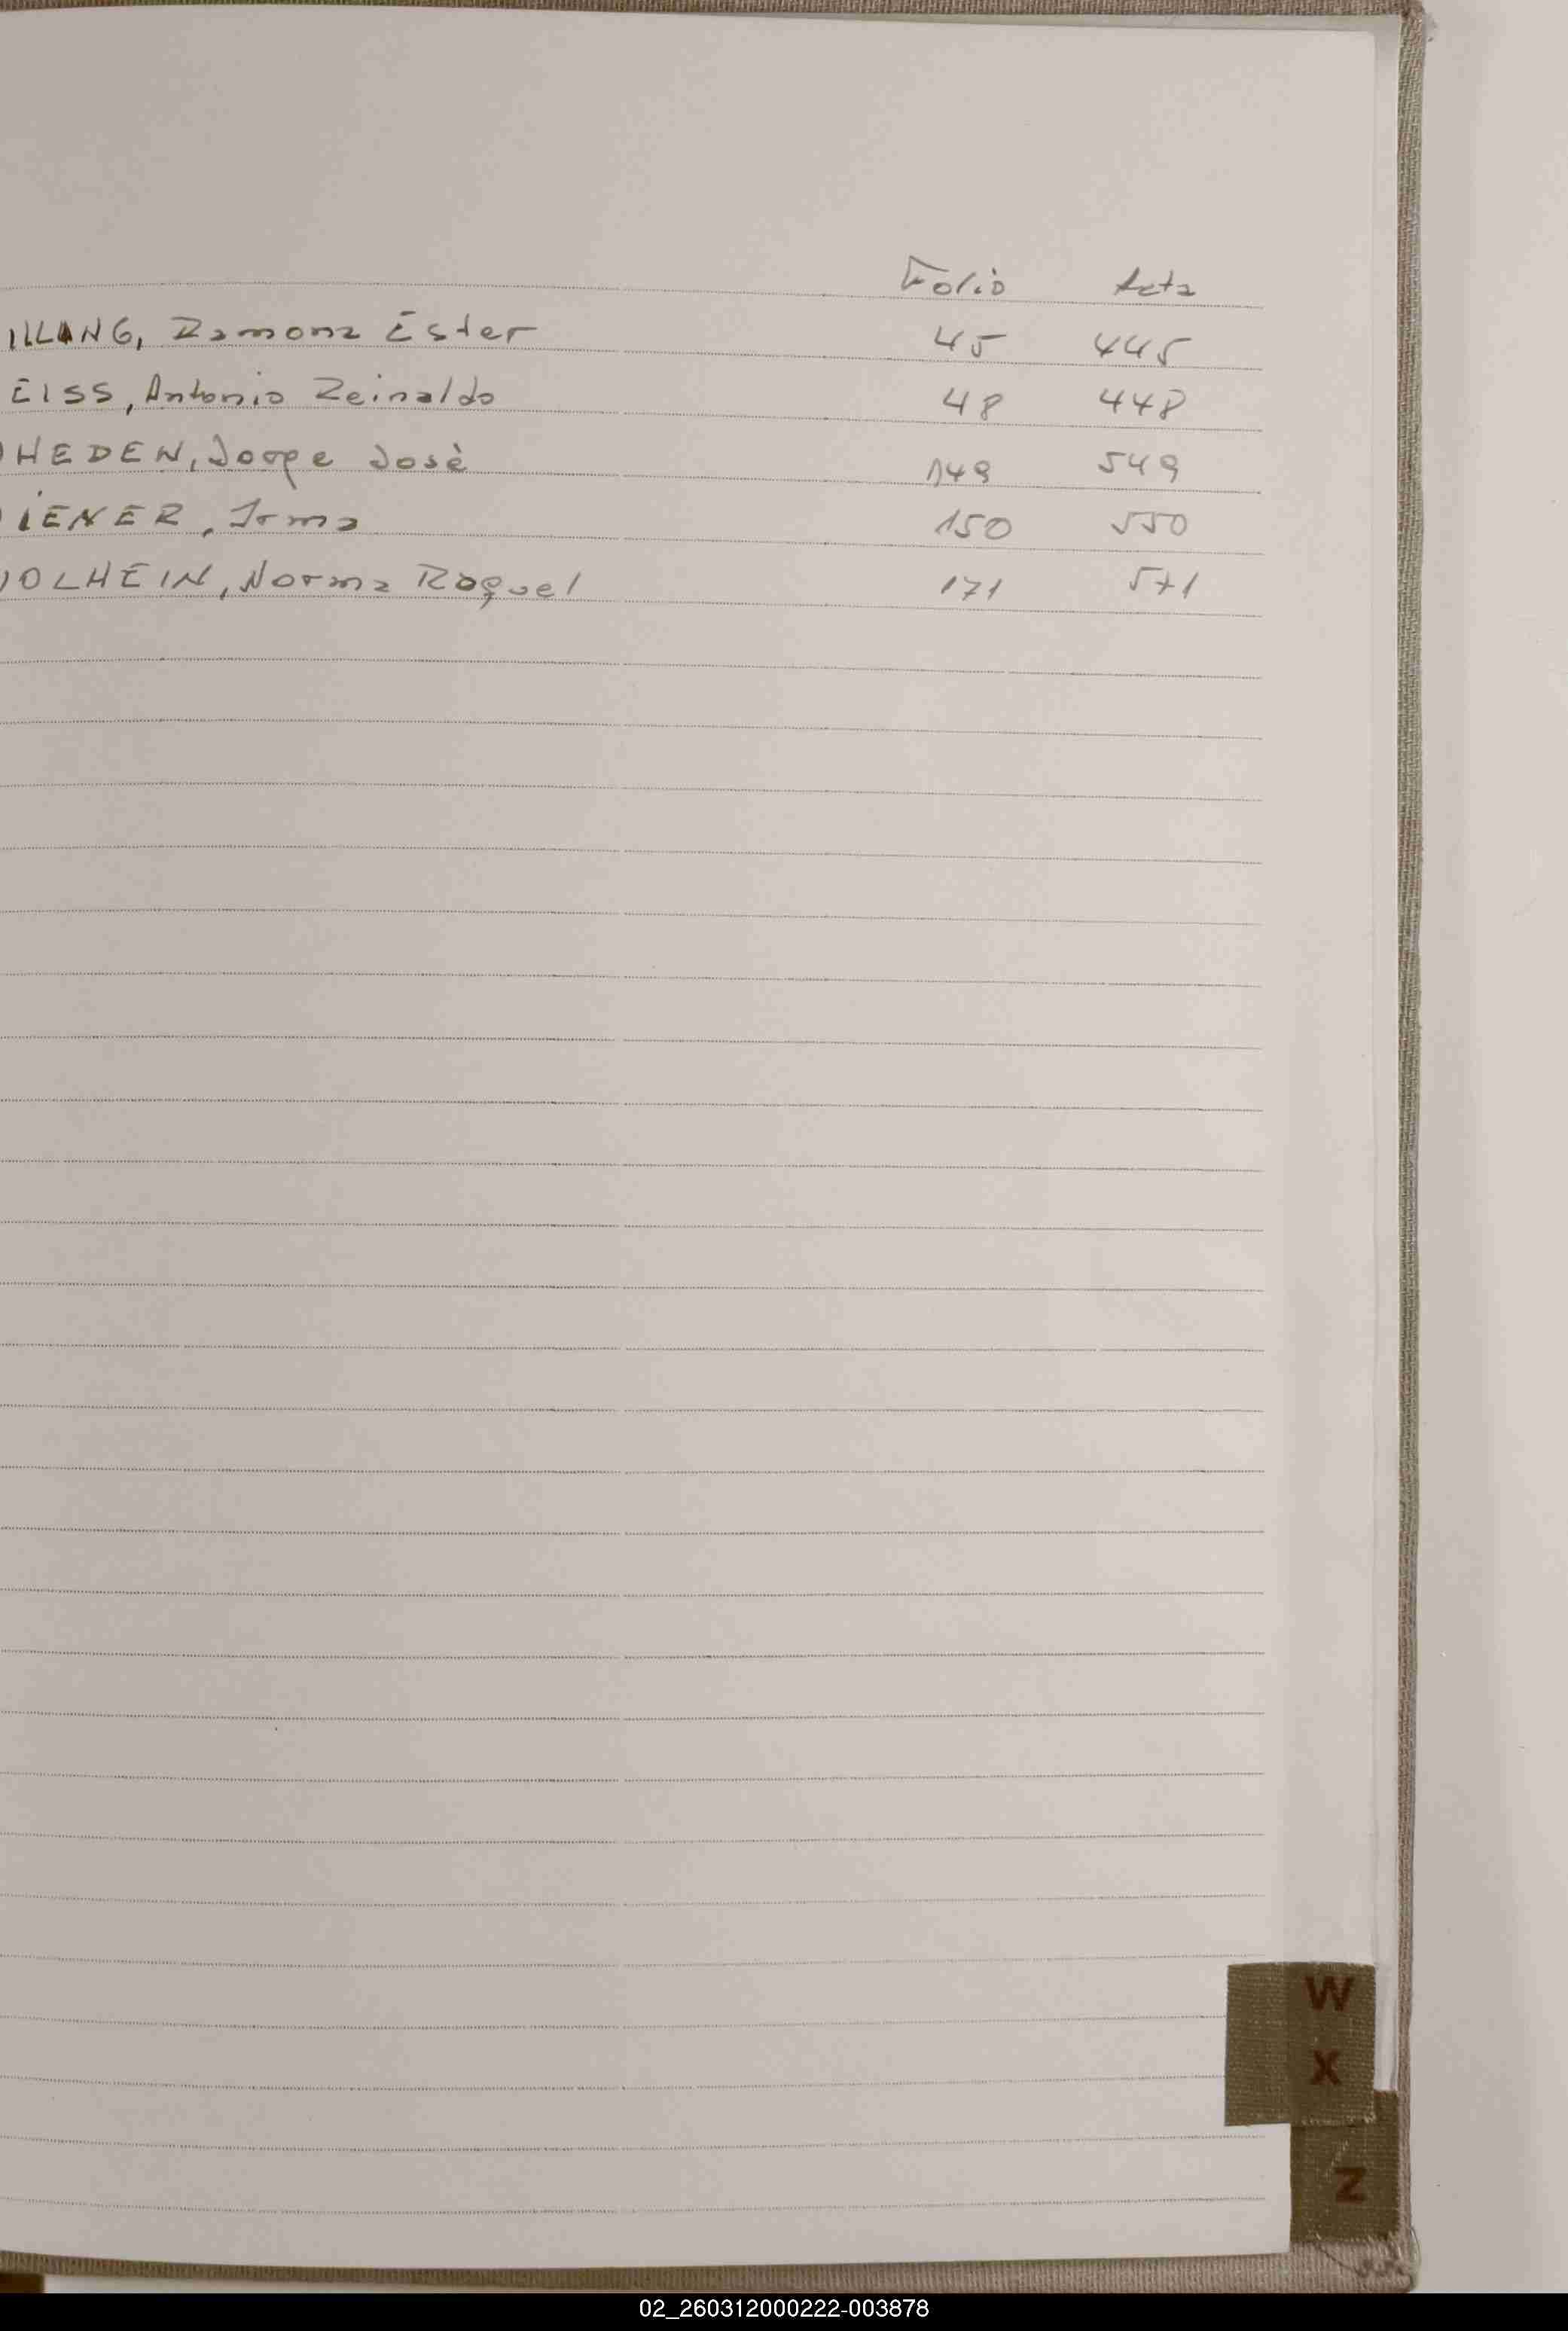 Folio Acta
ILLANG, Ramona Ester 45 445
EISS, Antonio Reinaldo 48 448
HEDEN, Jorge José 149 549
IENER, Irma 150 550
OLHEIN, Norma Raquel 171 571
W
X
Z
02_260312000222-003878